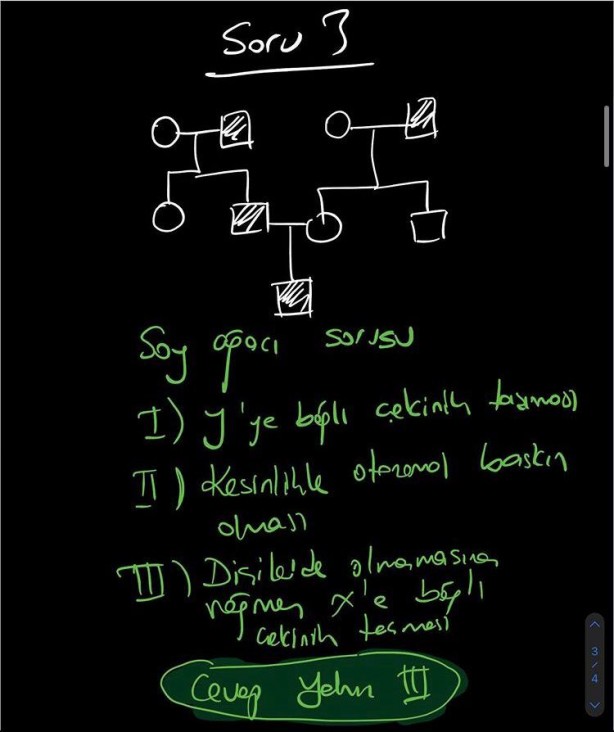 Soru 3
Soy ağacı sorusu
I) Y'ye bağlı çekinik taşınması
II) Kesinlikle otozomal baskın
olması
III) Dişilerde olmamasına
rağmen X'e bağlı
çekinik taşıması
Cevap Yalnız III
3
/
4